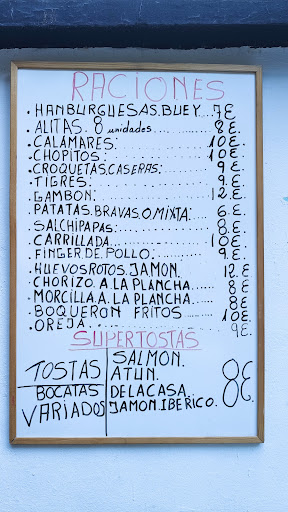 RACIONES
. HANBURGUESAS.BUEY... 7€
. ALITAS. 8 unidades........ 8€.
. CALAMARES:............ 10€.
. CHOPITOS:............ 10€.
. CROQUETAS.CASERAS:...... 9€.
. TIGRES:............ 9€.
. GAMBON:............ 12€.
. PATATAS.BRAVAS.O.MIXTA:... 6€.
. SALCHIPAPAS:.......... 8€.
. CARRILLADA.......... 10€.
. FINGER.DE.POLLO:........ 9€.
. HUEVOS ROTOS.JAMON. 12€
. CHORIZO.A.LA PLANCHA..... 8€
. MORCILLA.A.LA PLANCHA.... 8€
. BOQUERON FRITOS....... 10€
. OREJA.............. 9€
SUPERTOSTAS
TOSTAS
BOCATAS
VARIADOS
SALMON.
ATUN.
DELACASA.
JAMON.IBERICO.
8€